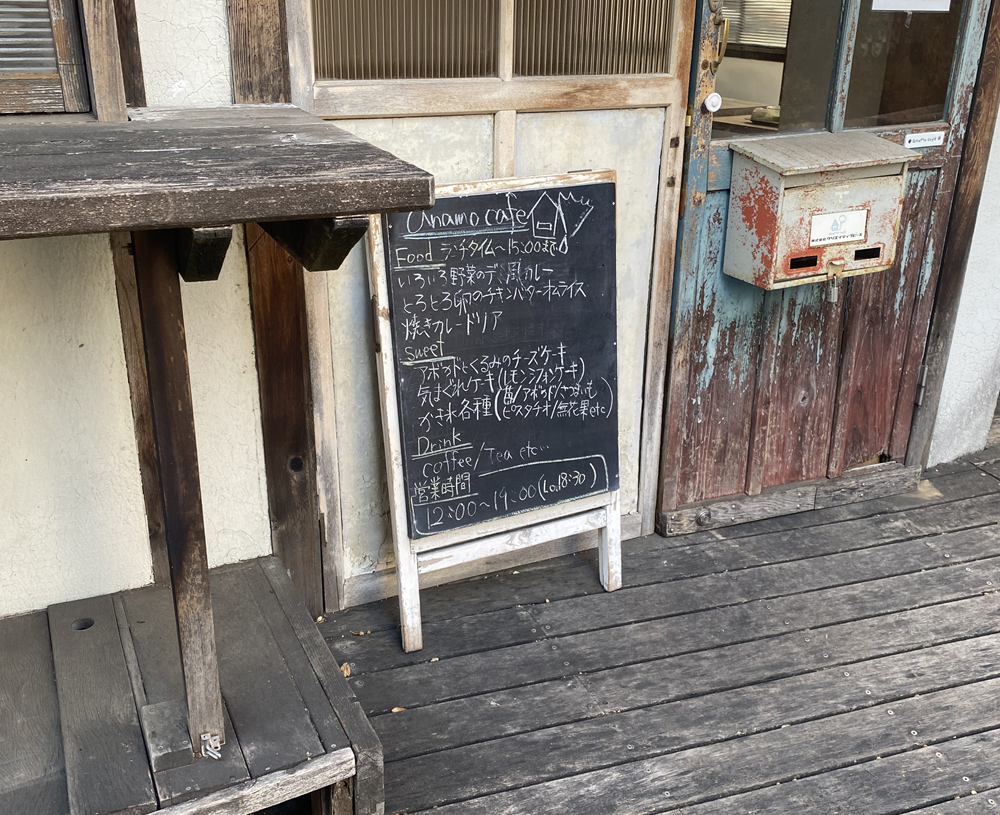 Onamo cafe
Food ランチタイム〜15:00まで
いろいろ野菜のデミ風カレー
とろとろ卵のチキンバターオムライス
焼きカレードリア
Sweet
アボカドとくるみのチーズケーキ
気まぐれケーキ(レモンシフォンケーキ)
かき氷各種(苺/アボカド/さつまいも
ピスタチオ/無花果etc)
Drink
coffee/Tea etc…
営業時間
12:00〜19:00(Lo.18:30)